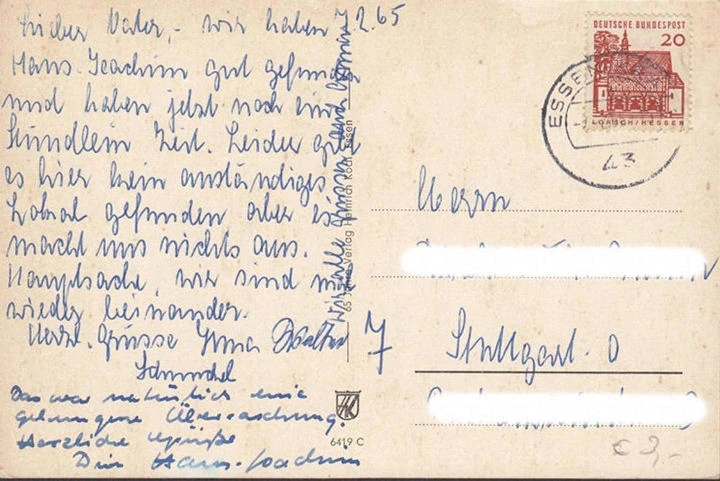 7.2.65
Lieber Vater,- wir haben
Hans-Joachim gut gefunden
und haben jetzt noch ein
Stündlein Zeit. Leider gibt
es hier kein anständiges
Lokal gefunden aber es
macht uns nichts aus.
Hauptsache, wir sind mal
wieder beinander.
Herzl. Grüsse Irma Walter
Das war natürlich eine
gelungene Überraschung.
Herzliche Grüße
Dein Hans-Joachim
Wir alle grüssen auch
65 Jahre Verlag Heinrich Koch, Essen
6419 C
DEUTSCHE BUNDESPOST
20
LORSCH/HESSEN
ESSEN
43
Herrn
7 Stuttgart-O
€ 3,-